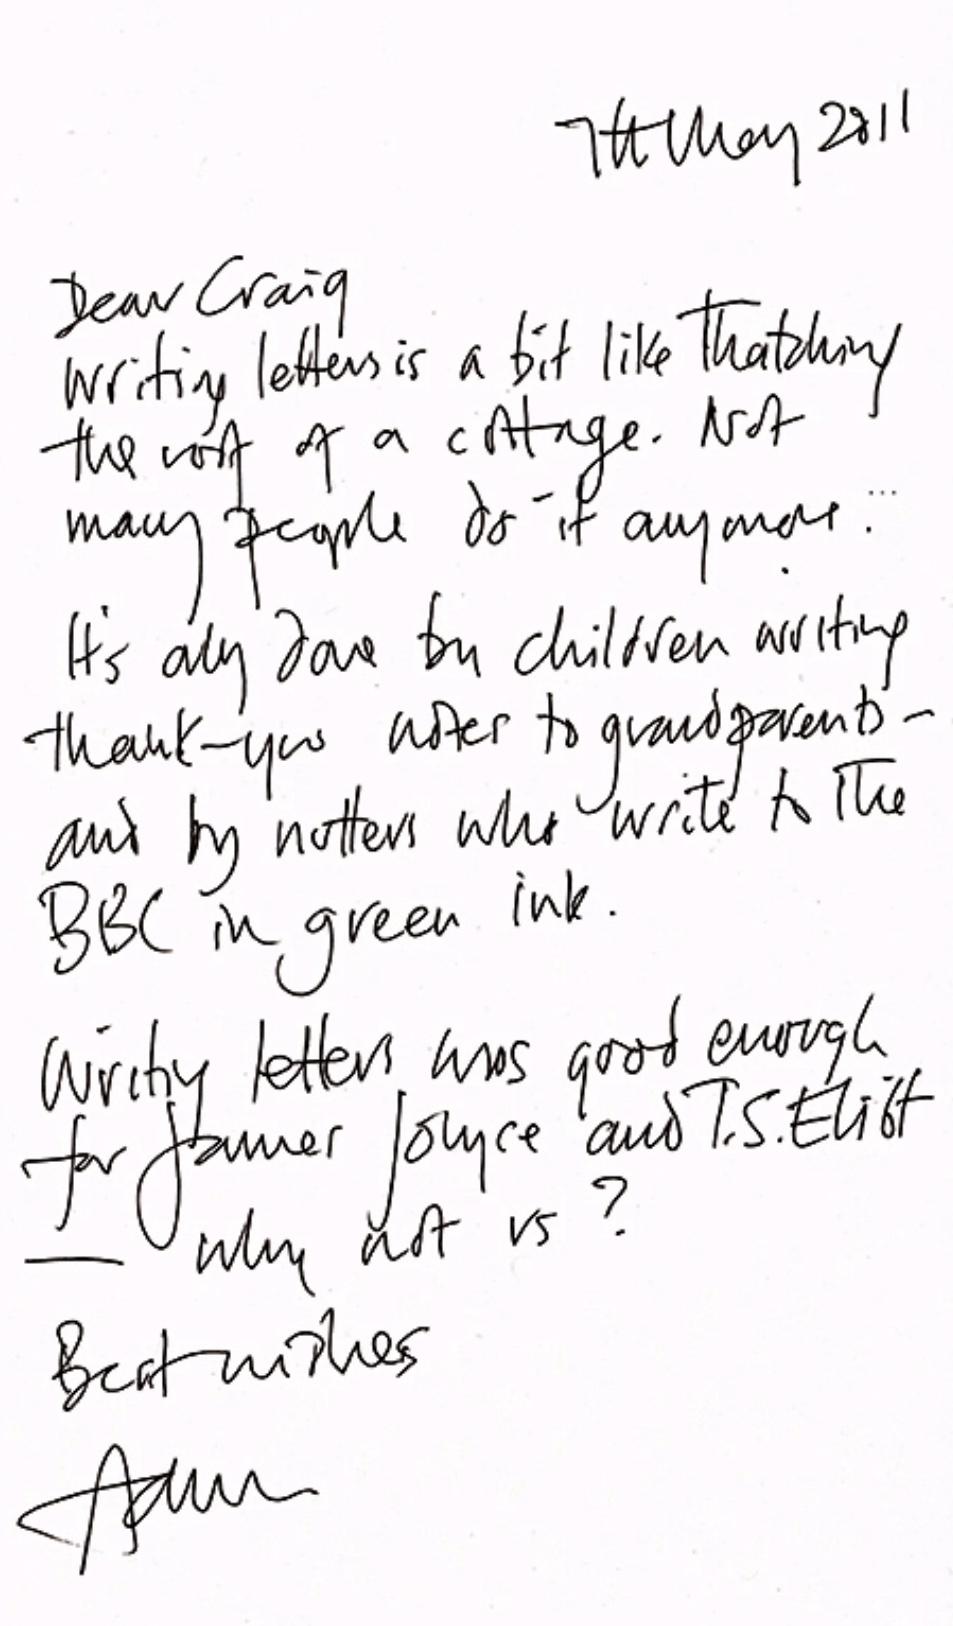 7th May 2011
Dear Craig
Writing letters is a bit like Thatching
the roof of a cottage. Not
many people do it anymore...
It's only done by children writing
thank-you notes to grandparents –
and by nutters who write to The
BBC in green ink.
Writing letters was good enough
for James Joyce and T.S. Eliot
— why not us?
Best wishes
Adam